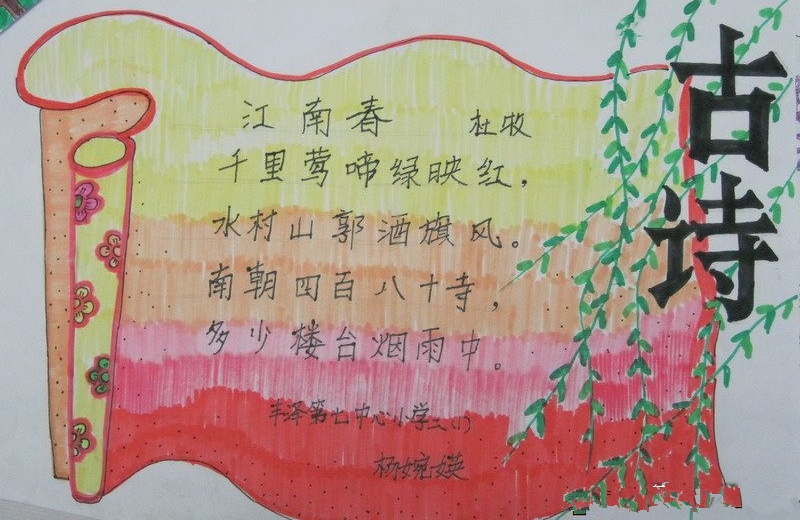 古诗
江南春 杜牧
千里莺啼绿映红，
水村山郭酒旗风。
南朝四百八十寺，
多少楼台烟雨中。
丰泽第七中心小学三(1)
杨婉媖